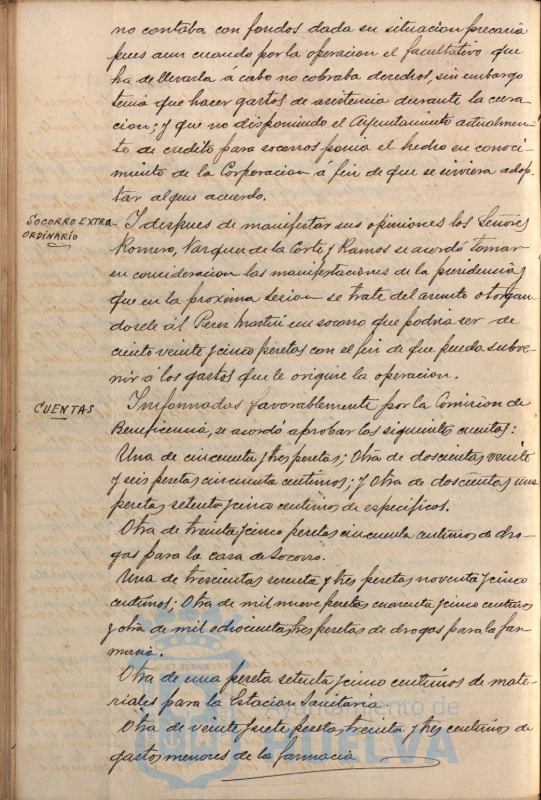 no contaba con fondos dada su situacion precaria
pues aun cuando por la operacion el facultativo que
ha de llevarla á cabo no cobraba derechos, sin embargo
tenia que hacer gastos de asistencia durante la cura
cion; y que no disponiendo el Ayuntamiento actualmen
te de credito para socorros ponia el hecho en conoci
miento de la Corporacion á fin de que se sirviera adop
tar algun acuerdo.
SOCORRO EXTRA-
ORDINARIO
Y despues de manifestar sus opiniones los Señores
Romero, Vazquez de la Corte y Ramos se acordó tomar
en consideracion las manifestaciones de la presidencia y
que en la proxima sesion se trate del asunto otorgan
dosele ál Perez Martin un socorro que podria ser de
ciento veinte y cinco pesetas con el fin de que pueda subve
nir á los gastos que le origine la operacion.
CUENTAS
Informadas favorablemente por la Comision de
Beneficencia, se acordó aprobar las siguientes cuentas:
Una de cincuenta y tres pesetas; Otra de doscientas veinte
y seis pesetas cincuenta centimos; y Otra de doscientas una
pesetas setenta y cinco centimos de especificos.
Otra de treinta y cinco pesetas cincuenta centimos de dro-
gas para la casa de Socorro.
Una de trescientas y tres pesetas noventa y cinco
centimos; Otra de mil nueve pesetas cuarenta y cinco centimos
y otra de mil ochocientas tres pesetas de drogas para la far
macia.
Otra de una peseta setenta y cinco centimos de mate-
riales para la Estacion Sanitaria
Otra de veinte y siete pesetas treinta y tres centimos de
gastos menores de la farmacia
Ayuntamiento de
HUELVA